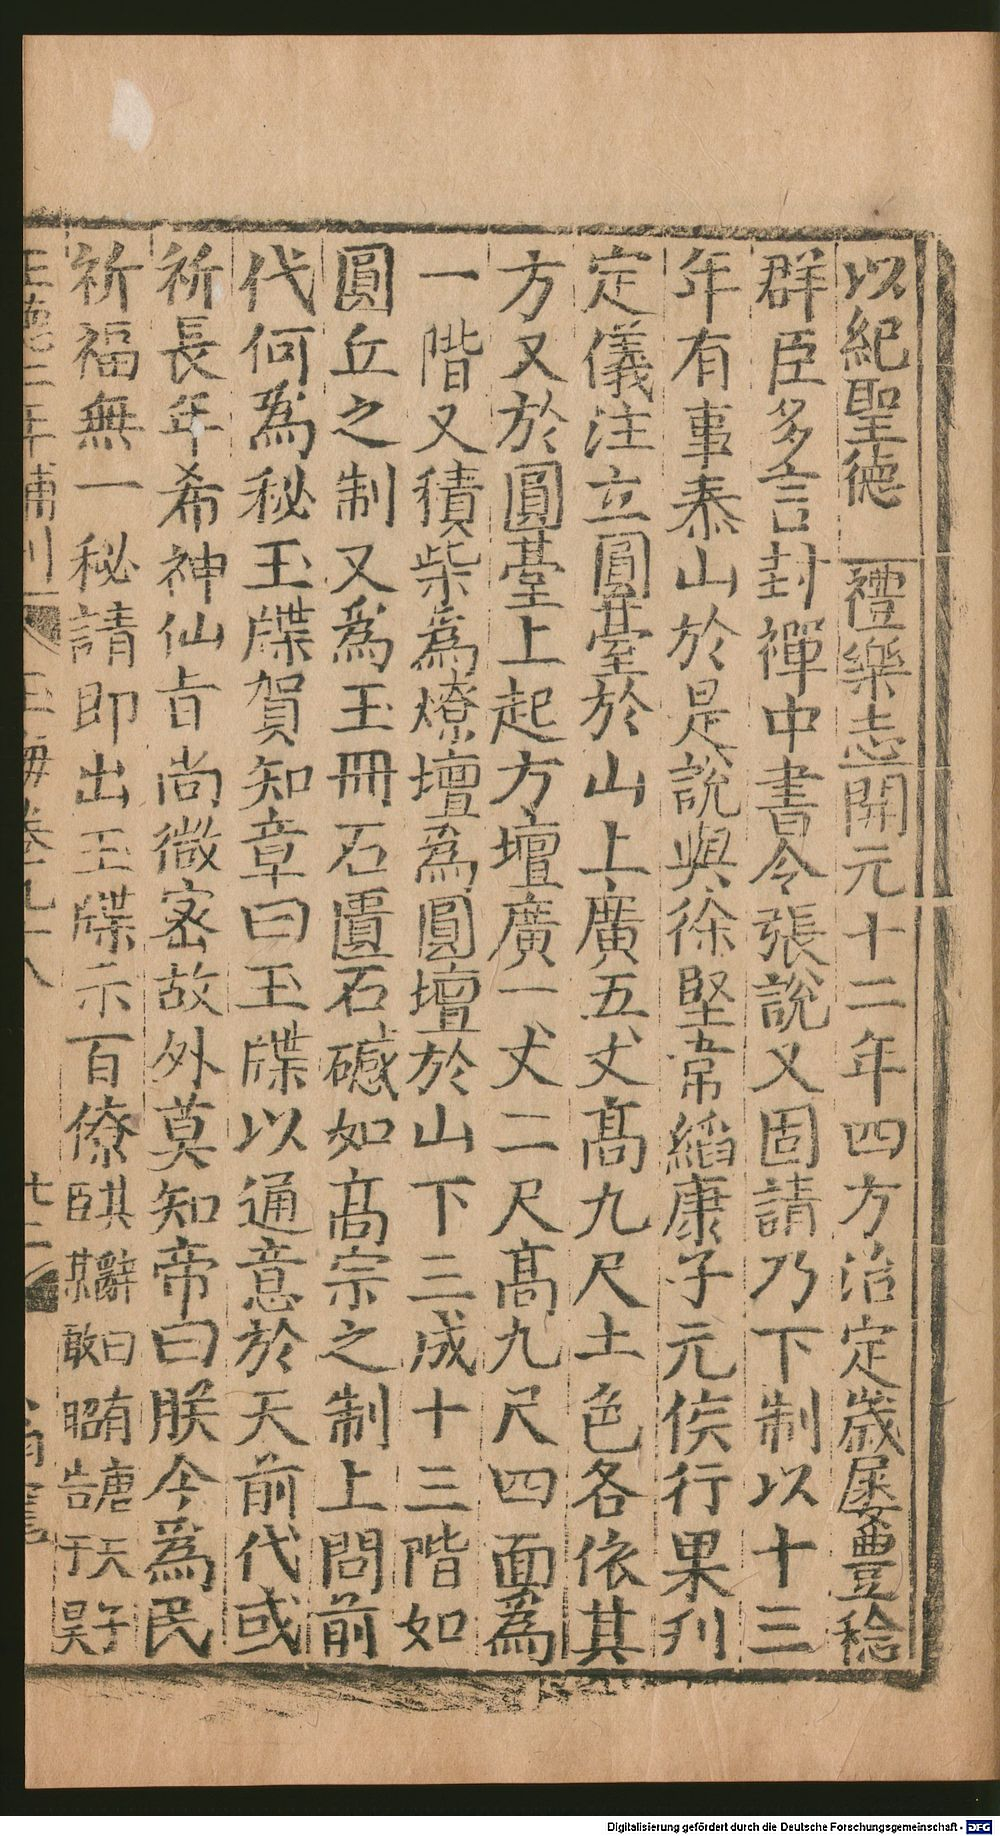 以紀聖德 禮樂志開元十二年四方治定歲屢豐稔
群臣多言封禪中書令張說又固請乃下制以十三
年有事泰山於是說與徐堅韋縚康子元侯行果刋
定儀注立圓臺於山上廣五丈高九尺土色各依其
方又於圓臺上起方壇廣一丈二尺高九尺四面爲
一階又積柴爲燎壇爲圓壇於山下三成十三階如
圓丘之制又爲玉冊石匱石𥗫如高宗之制上問前
代何爲秘玉牒賀知章曰玉牒以通意於天前代或
祈長年希神仙旨尚微宻故外莫知帝曰朕今爲民
祈福無一秘請即出玉牒示百僚其辭曰有唐天子臣某敢昭告于昊
正德二年補刋 玉海卷九十八 廿二
Digitalisierung gefördert durch die Deutsche Forschungsgemeinschaft - DFG